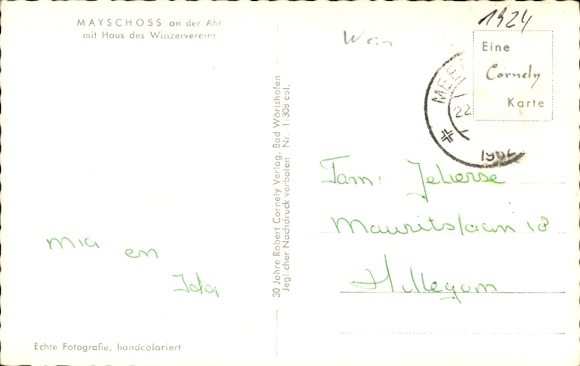 MAYSCHOSS an der Ahr
mit Haus des Winzervereins
Mia en
Echte Fotografie, handcoloriert
30 Jahre Robert Cornely Verlag, Bad Wörishofen
Jeglicher Nachdruck verboten Nr. 1/308 col.
Wein
1924
Eine
Cornely
Karte
22
1962
Fam:
Mauritslaan 18
Hillegom